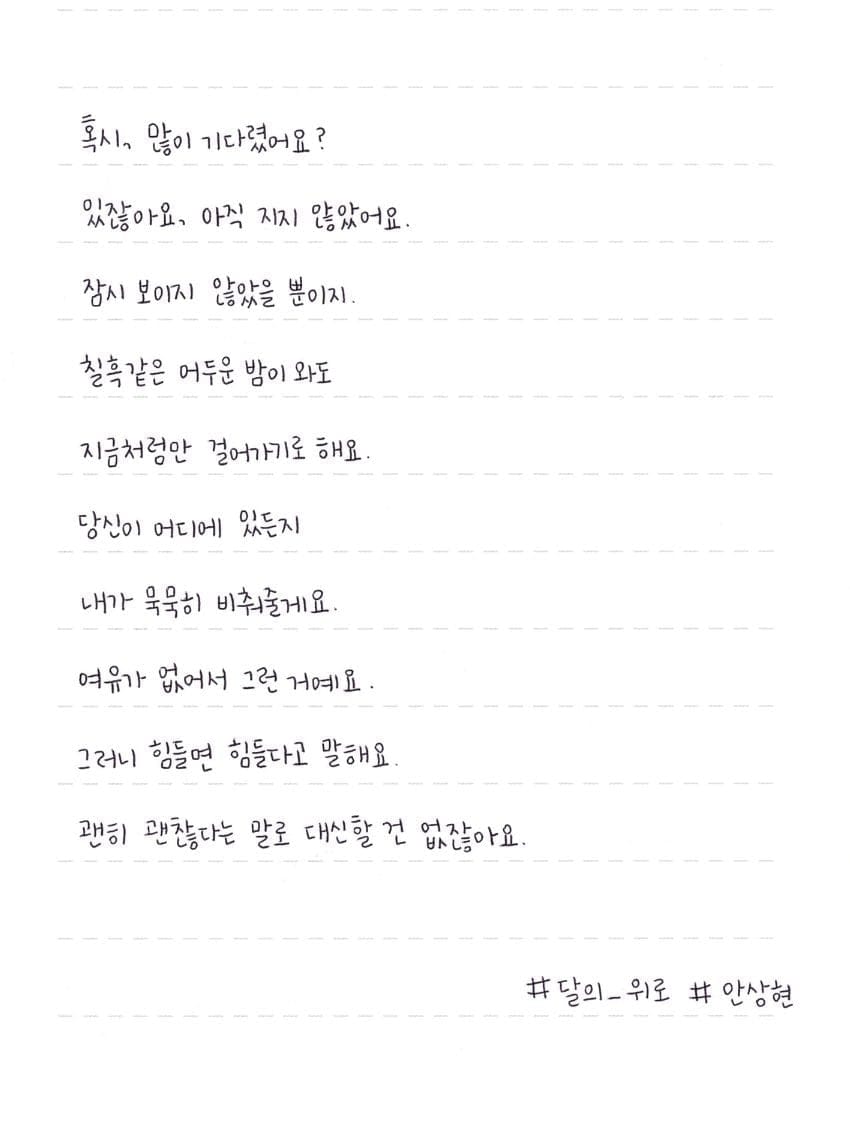 혹시, 많이 기다렸어요?
있잖아요, 아직 지지 않았어요.
잠시 보이지 않았을 뿐이지.
칠흑같은 어두운 밤이 와도
지금처럼만 걸어가기로 해요.
당신이 어디에 있든지
내가 묵묵히 비춰줄게요.
여유가 없어서 그런 거예요.
그러니 힘들면 힘들다고 말해요.
괜히 괜찮다는 말로 대신할 건 없잖아요.
#달의_위로 #안상현